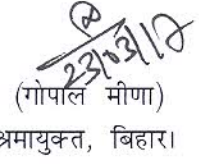 23/03/18
(गोपाल मीणा)
श्रमायुक्त, बिहार।